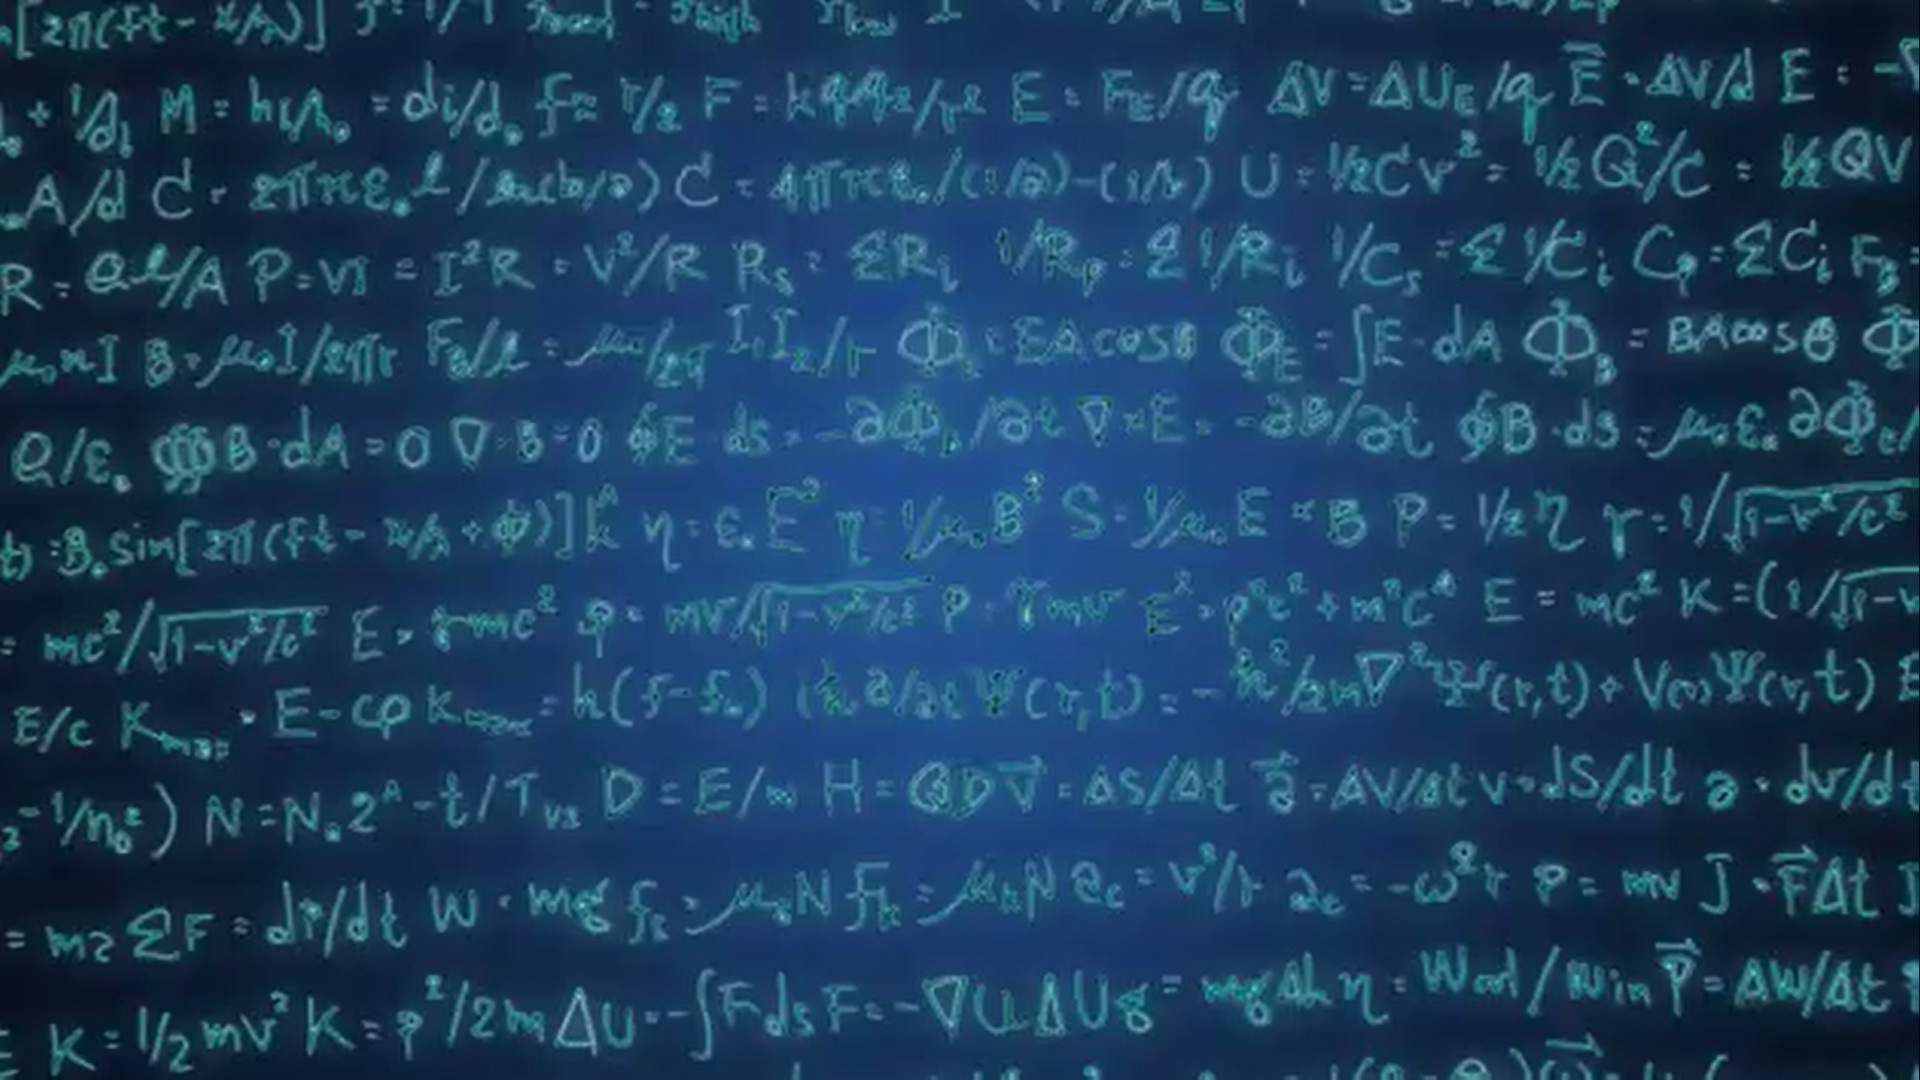 [2π(ft - x/λ)]
+ 1/d₁ M = hᵢ/hₒ = dᵢ/dₒ f = r/2 F = kq₁q₂/r² E = F_E/q ΔV = ΔU_E/q E⃗ = ΔV/d E = -∇
A/d C = 2πκε₀ℓ/ln(b/a) C = 4πκε₀/(1/a)-(1/b) U = ½CV² = ½Q²/C = ½QV
R = ρℓ/A P = VI = I²R = V²/R Rₛ = ΣRᵢ 1/Rₚ = Σ1/Rᵢ 1/Cₛ = Σ1/Cᵢ Cₚ = ΣCᵢ F_B =
μ₀nI B = μ₀I/2πr F_B/ℓ = μ₀/2π I₁I₂/r Φ_E = EAcosθ Φ_E = ∫E·dA Φ_B = BAcosθ Φ
Q/ε₀ ∯B·dA = 0 ∇·B = 0 ∮E·ds = -∂Φ_B/∂t ∇×E = -∂B/∂t ∮B·ds = μ₀ε₀ ∂Φ_E/
t) = B₀ sin[2π(ft - x/λ + φ)]k̂ η = ε₀E² η = 1/μ₀B² S = 1/μ₀E × B P = 1/2η γ = 1/√1-v²/c²
= mc²/√1-v²/c² E = γmc² p = mv/√1-v²/c² P = γmv E² = p²c² + m²c⁴ E = mc² K = (1/√1-v
E/c K_max = E-φ K_max = h(f-f₀) iħ∂/∂tΨ(r,t) = -ħ²/2m∇²Ψ(r,t) + V(r)Ψ(r,t) E
-1/n₀²) N = N₀2^-t/T₁/₂ D = E/m H = QD v⃗ = ΔS/Δt a⃗ = ΔV/Δt v = dS/dt a = dv/dt
= ma ΣF = dp/dt W = mg fₛ = μₛN fₖ = μₖN a_c = v²/r a_c = -ω²r P = mv J = F⃗Δt J
K = 1/2mv² K = p²/2m ΔU = -∫Fds F = -∇U ΔUg = mgΔh η = Wout/Win P⃗ = ΔW/Δt